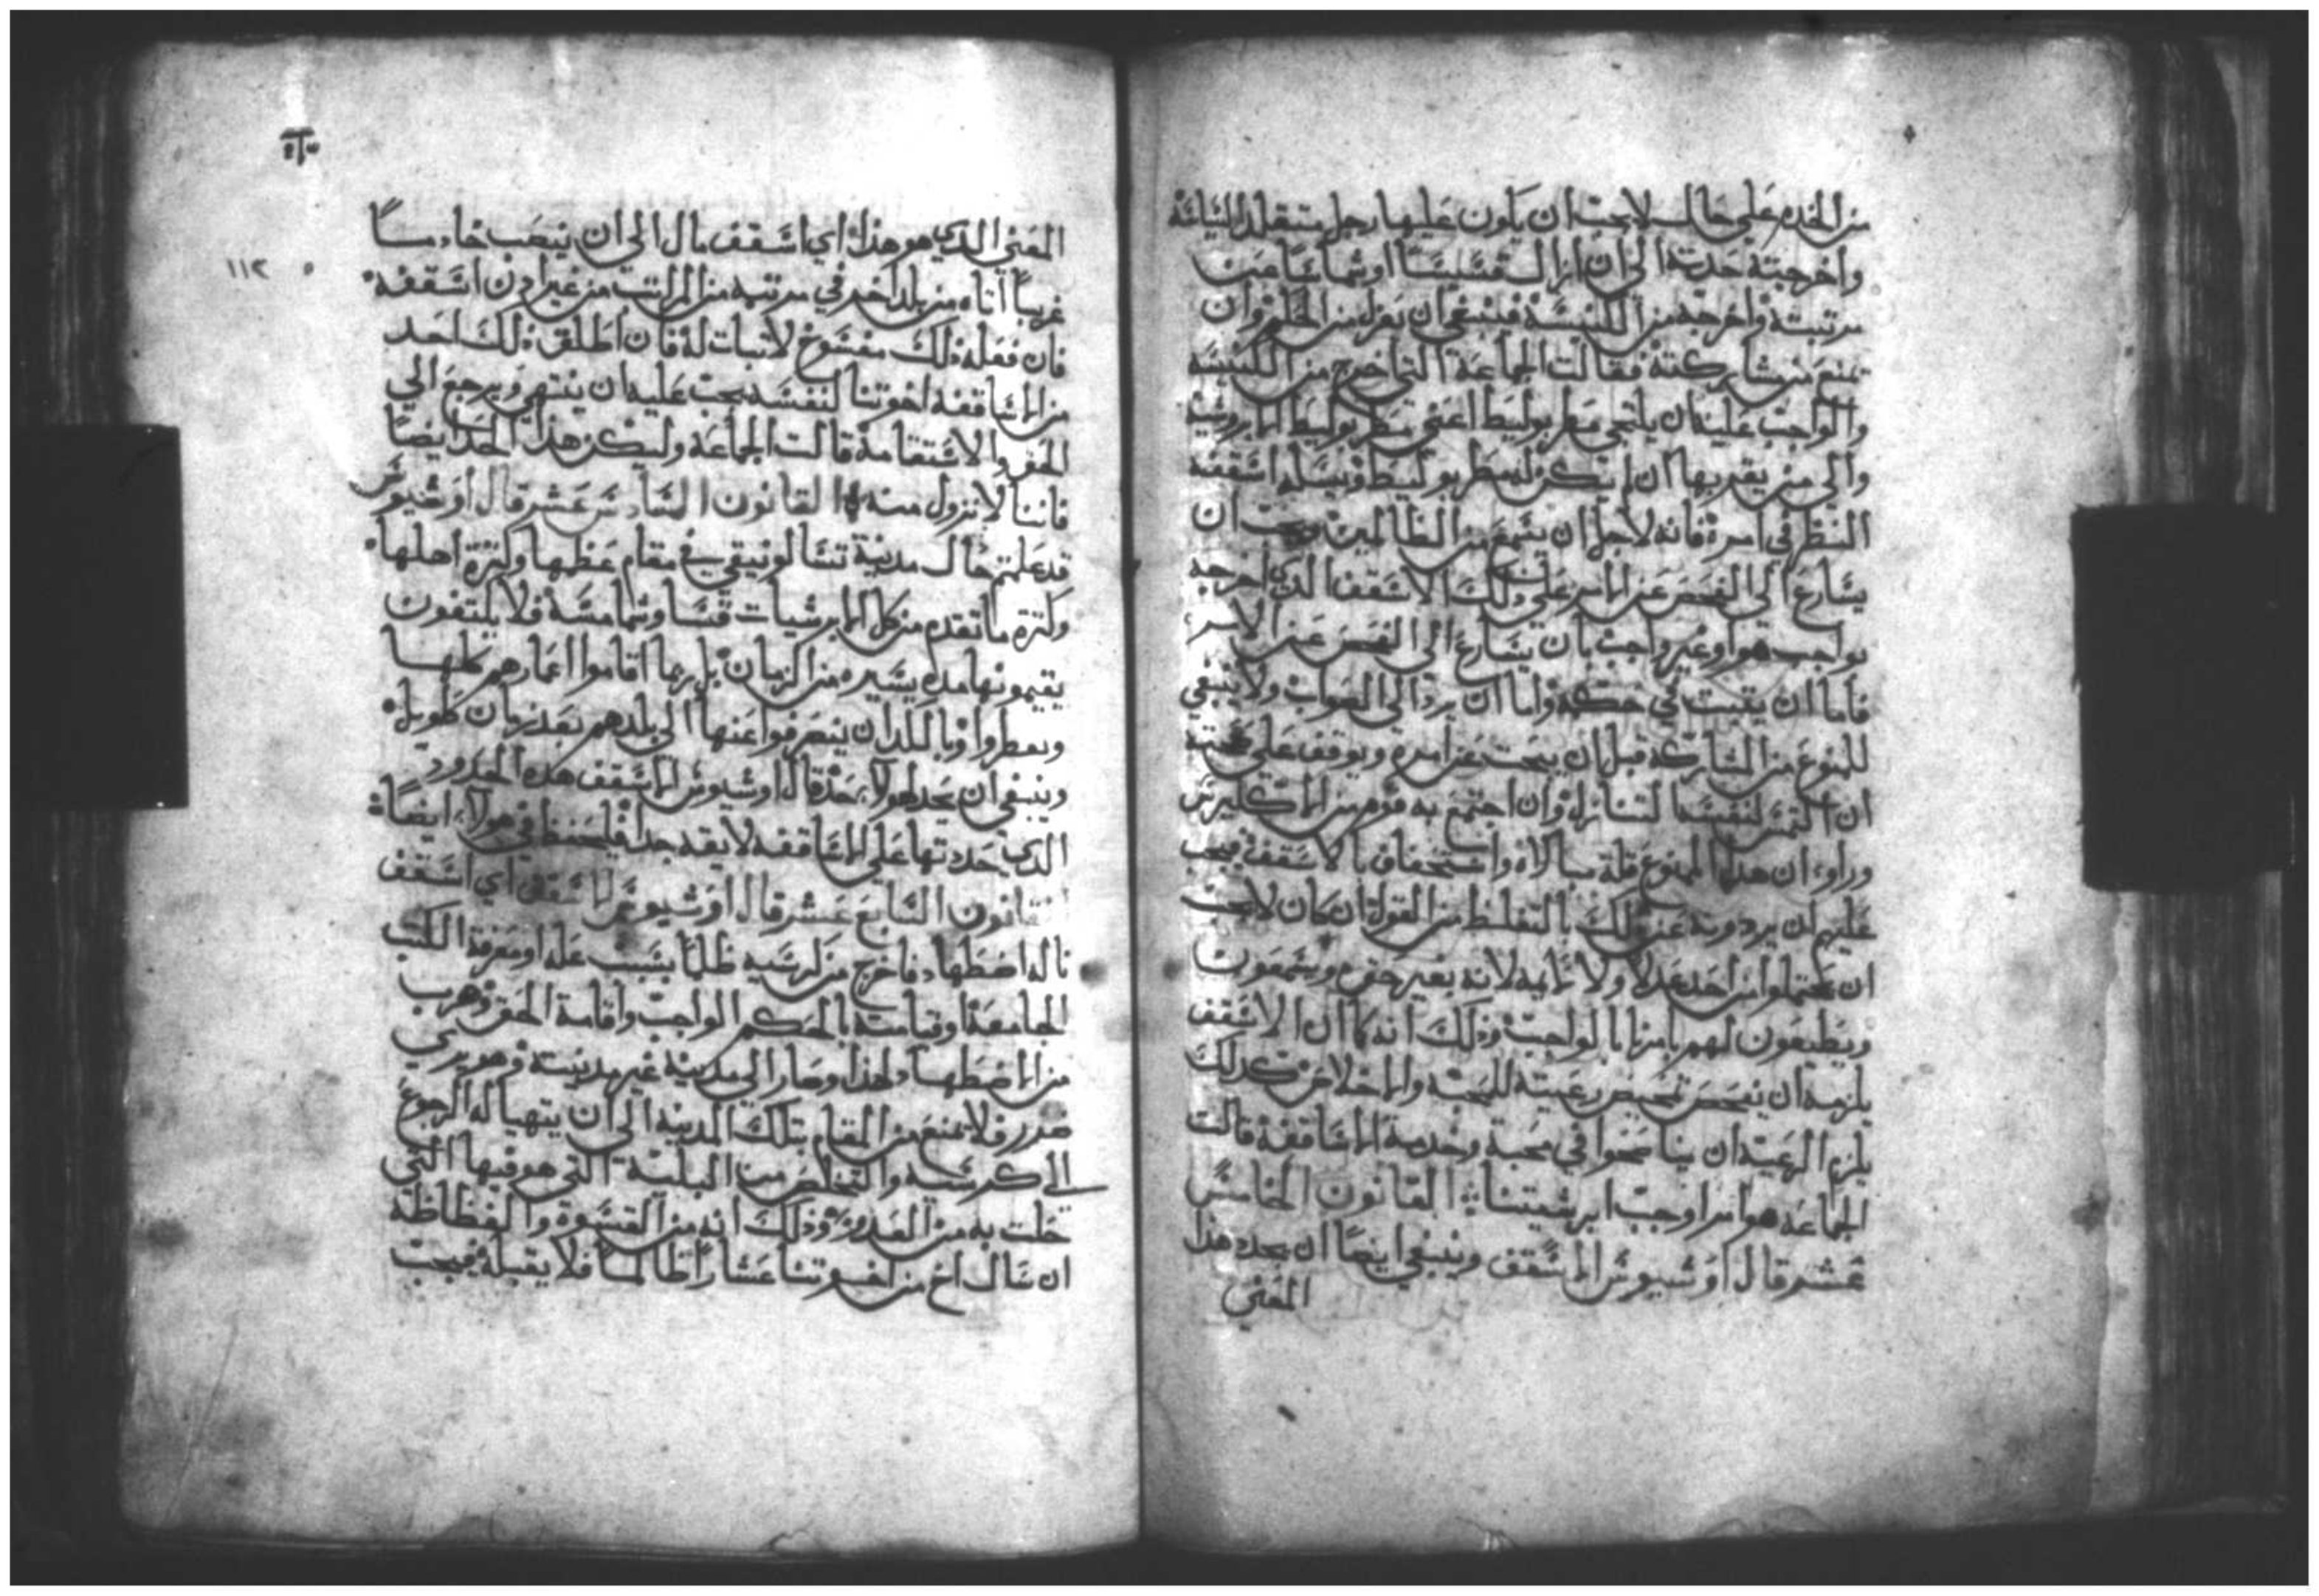 من الخده علي حال لا يجب ان يكون عليها رجل متقلد السياسة
واخرجته حدته الي ان ازال قسيسا او شماسا عن
مرتبته واخرجه من الكنيسة فينبغي ان يعزل من الحكم وان
تمنع من مشاركته فقالت الجماعة التي اخرج من الكنيسه
والواجب عليه ان يلتجي مطربوليط اعني مطربوليط الابروشية
والي من يقربها ان لم يكن له مطربوليط ويسله اشقفه
النظر في امره فانه لاجل ان يتمنع من الظالمين يجب ان
يسارع الي الفحص عن الامر علي ذلك الاسقف الذي اخرجه
بواجب هو او غير واجب بان يسارع الي الفحص عن الامر
فاما ان يثبت في حكمه واما ان يرد الي الصواب ولا ينبغي
للممنوع من المشاركه قبل ان يبحث عن امره ويوقف علي صحته
ان التمس لنفسه التنازل وان اجتمع به قوم من الاكليرس
وراوا ان هذا الممنوع قلة مبالاه واستخفاف بالاسقف فيجب
عليهم ان يردوه عن ذلك بالتغليظ من القول ان كان لا يجب
ان يحتملوا من احد عذلا ولا لايمه لانه بغير حق ويسمعون
ويطيعون لهم يامرنا بالواجب وذلك انه كما ان الاسقف
يلزمه ان يفحص تمحيص رعيته للمحبه والاخلاص كذلك
يلزم الرعية ان يناصحوا في محبة وخدمة الاساقفة قالت
الجماعه هو امر اوجب ابرشيتنا القانون الخامس
عشر قال اوشيوس الاسقف وينبغي ايضا ان يحدد هذا
المعني
١١٢
المعني الذي هو هذا اي اسقف مال الي ان ينصب خادما
غريبا اتاه من بلد اخر في مرتبه من المراتب من غير اذن اسقفه
فان فعله ذلك مفسوخ لا ثبات له فان اطلق ذلك احد
من الاساقفه اخوتنا لنفسه يجب عليه ان ينتهي ويرجع الي
الحق والاستقامة قالت الجماعه وليكن هذا الحد ايضا
فاننا لا نزول منه القانون السادس عشر قال اوشيوس
قد علمتم حال مدينة تسالونيقي في مقام عظمها وكثرة اهلها
وكثره ما تقدم من كل الابرشيات قسا وشمامسه فلا يكتفون
يقيمونها مده يسيره من الزمان بل ربما اقاموا اعمارهم كلها
ويضطروا وبالكد ان ينصرفوا عنها الي بلدهم بعد زمان طويل
وينبغي ان يحد لهولاء حد قال اوشيوس الاسقف هذه الحدود
الذي حددتها علي الاساقفه لا يقدم جدا فليحفظ في هولاء ايضا
القانون السابع عشر قال اوشيوس الاسقف اي اسقف
ناله اضطهاد فاخرج من كرسيه ظلما بسبب علم او معرفة الكتب
الجامعة او قيامته بالحكم الواجب واقامة الحق وهرب
من الاضطهاد لهذا وصار الي مدينة غير مدينته وهو بري
صدره فلا يمنع من المقام بتلك المدينه الي ان يتهيا له الرجوع
الي كرسيه والتخلص من البلية التي هو فيها التي
حلت به من العدو وذلك انه من القسوة والفظاظة
ان سال اخ من اخوتنا عشارا ظالما فلا يقبله فيجب